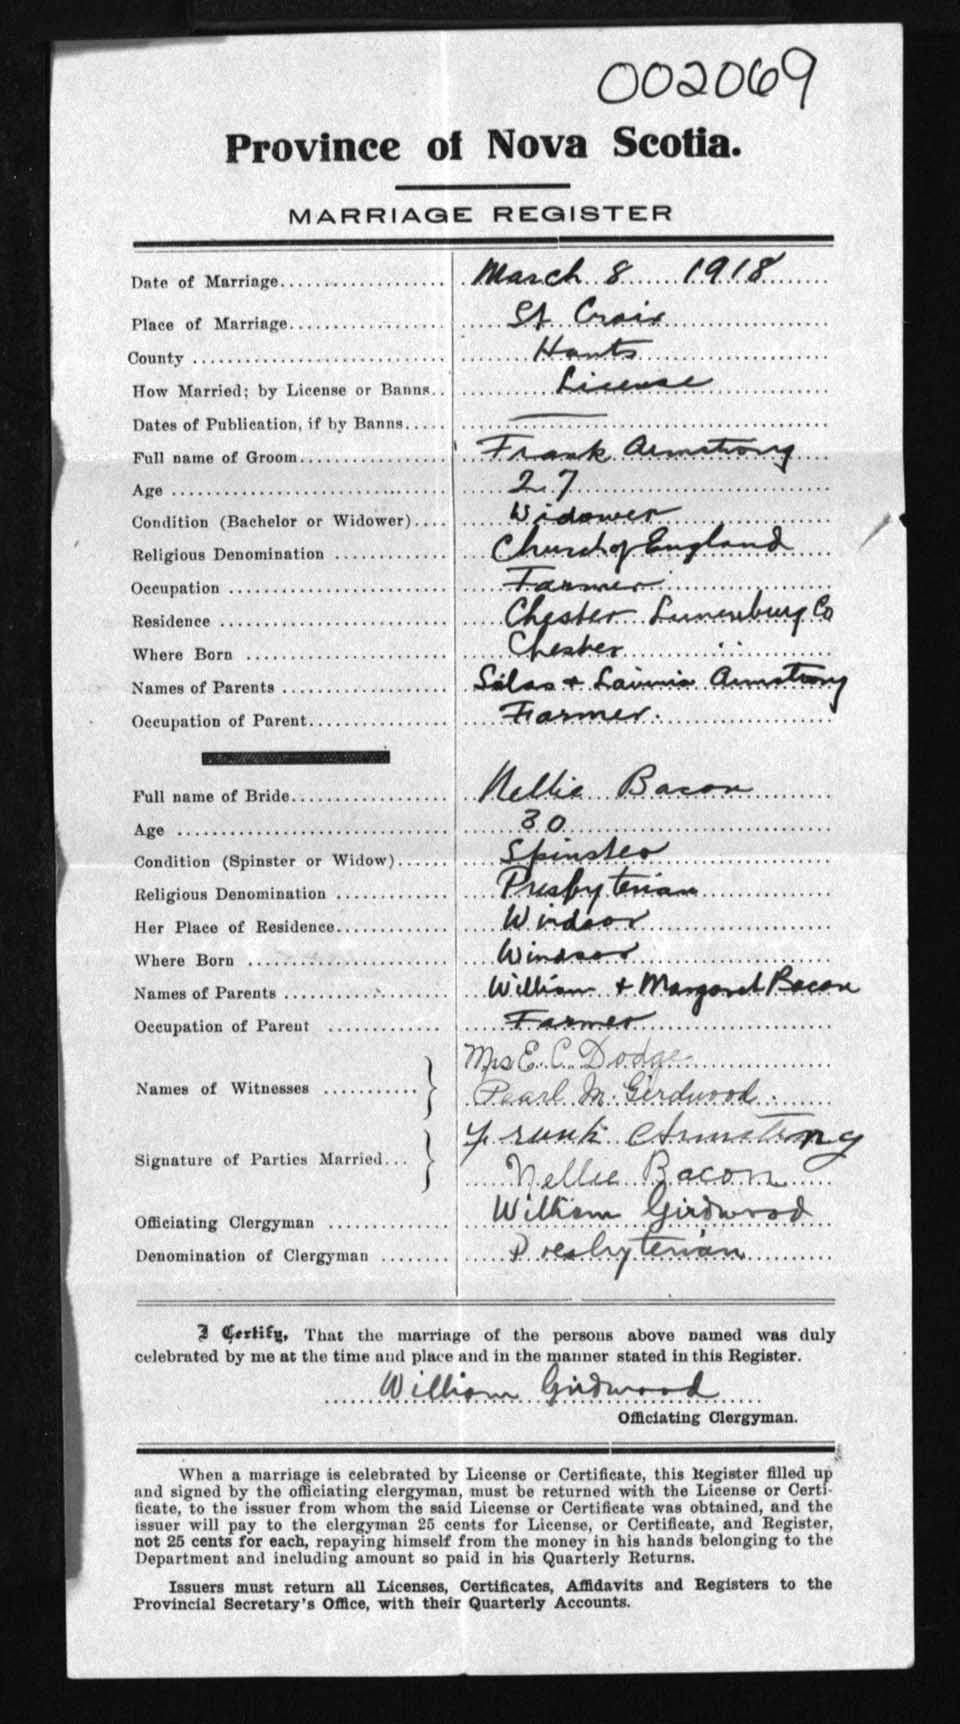 002069
Province of Nova Scotia.
MARRIAGE REGISTER
Date of Marriage.................... March 8 1918
Place of Marriage.................. St Croix
County ............................. Hants
How Married; by License or Banns.. License
Dates of Publication, if by Banns..... ———
Full name of Groom.................. Frank Armstrong
Age ............................... 27
Condition (Bachelor or Widower).... Widower
Religious Denomination ............ Church of England
Occupation ........................ Farmer
Residence ......................... Chester Lunenburg Co
Where Born ........................ Chester
Names of Parents .................. Silas + Lavinia Armstrong
Occupation of Parent............... Farmer.
Full name of Bride................. Nellie Bacon
Age ............................... 30
Condition (Spinster or Widow)...... Spinster
Religious Denomination ............ Presbyterian
Her Place of Residence............. Windsor
Where Born ........................ Windsor
Names of Parents .................. William + Margaret Bacon
Occupation of Parent .............. Farmer
Mrs E. C. Dodge
Names of Witnesses ............
Pearl M. Girdwood.
Frank Armstrong
Signature of Parties Married...
Nellie Bacon
Officiating Clergyman ............. William Girdwood
Denomination of Clergyman ........ Presbyterian
I Certify, That the marriage of the persons above named was duly
celebrated by me at the time and place and in the manner stated in this Register.
William Girdwood
Officiating Clergyman.
When a marriage is celebrated by License or Certificate, this Register filled up
and signed by the officiating clergyman, must be returned with the License or Certi-
ficate, to the issuer from whom the said License or Certificate was obtained, and the
issuer will pay to the clergyman 25 cents for License, or Certificate, and Register,
not 25 cents for each, repaying himself from the money in his hands belonging to the
Department and including amount so paid in his Quarterly Returns.
Issuers must return all Licenses, Certificates, Affidavits and Registers to the
Provincial Secretary's Office, with their Quarterly Accounts.